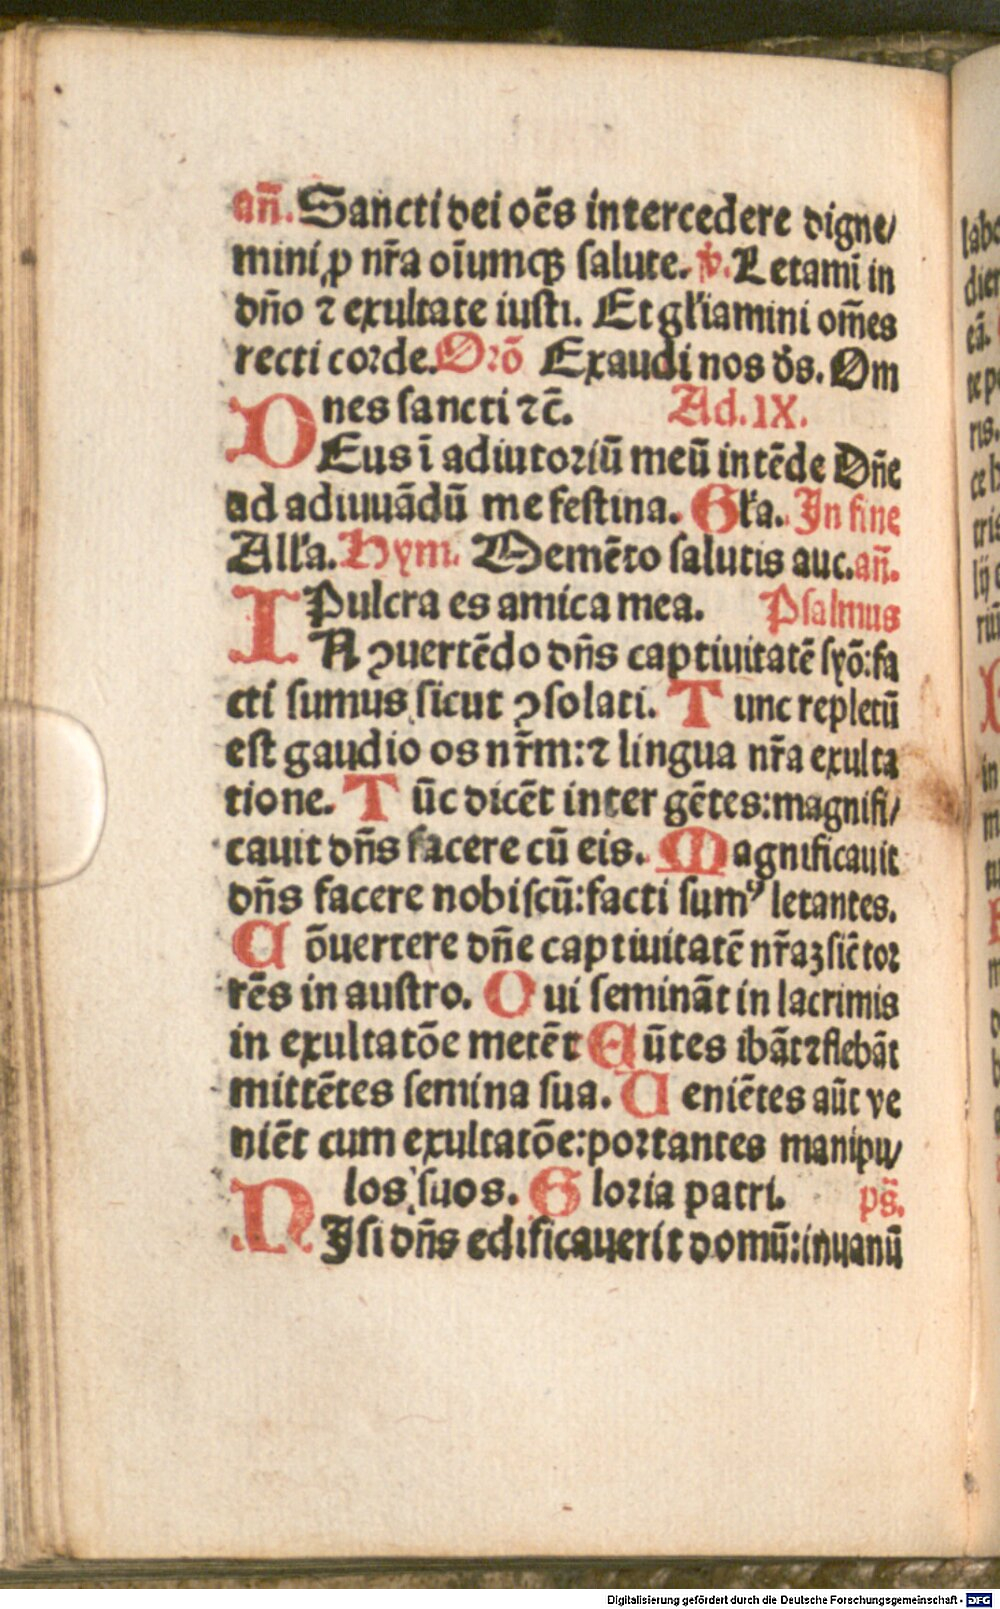 añ. Sancti dei oēs intercedere digne/
mini ꝓ nr̄a oīumqꝫ salute. ꝟ. Letami in
dño ⁊ exultate iusti. Et gl'iamini om̄es
recti corde. Orō Exaudi nos ds̄. Om
nes sancti ⁊c̄. Ad. IX.
DEus ī adiutoriū meū intēde Dñe
ad adiuuādū me festina. Gl'a. In fine
All'a. Hym. Memēto salutis auc. añ.
Pulcra es amica mea. Psalmus
IN ꝯuertēdo dñs captiuitatē syō: fa
cti sumus sicut ꝯsolati. Tunc repletū
est gaudio os nr̄m: ⁊ lingua nr̄a exulta
tione. Tūc dicēt inter gētes: magnifi/
cauit dñs facere cū eis. Magnificauit
dñs facere nobiscū: facti sumꝰ letantes.
Cōuertere dñe captiuitatē nr̄aꝫ sic̄ tor
rēs in austro. Qui semināt in lacrimis
in exultatōe metēt Eūtes ibāt ⁊ flebāt
mittētes semina sua. Ueniētes aūt ve
niēt cum exultatōe: portantes manipu/
los suos. Gloria patri. ps̄.
NIsi dñs edificauerit domū: inuanū
Digitalisierung gefördert durch die Deutsche Forschungsgemeinschaft - DFG